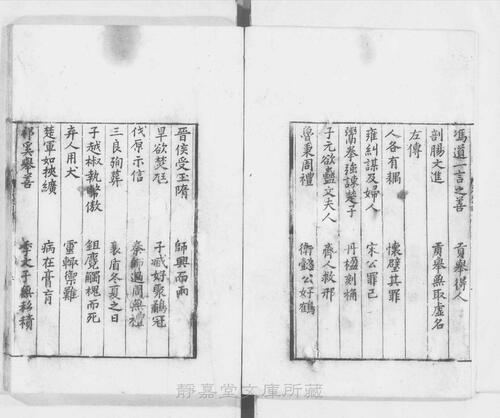 馮道一言之善　貢舉得人
剖腸大進　貢舉無取虛名
左傳
人各有耦　懷璧其罪
雍糾謀及婦人　宋公罪己
鬻拳強諫楚子　丹楹刻桷
子元欲蠱文夫人　齊人救邢
魯秉周禮　衛懿公好鶴
晉侯受玉惰　師興而雨
旱欲焚尫　子臧好聚鷸冠
伐原示信　秦師過周無禮
三良殉葬　衰盾冬夏之日
子越椒執幣傲　鉏麑觸槐而死
棄人用犬　靈輒禦難
楚軍如挾纊　病在膏肓
祁奚舉善　季文子無私積
靜嘉堂文庫所藏